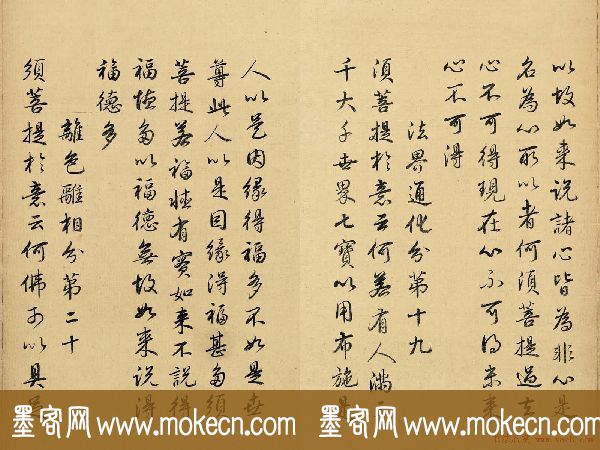 以故如来說諸心皆為非心是
名為心所以者何須菩提過去
心不可得現在心不可得未来
心不可得
法界通化分第十九
須菩提於意云何若有人滿三
千大千世界七寶以用布施是
人以是因緣得福多不如是世
尊此人以是因緣得福甚多須
菩提若福德有實如来不說得
福德多以福德無故如来說得
福德多
離色離相分第二十
須菩提於意云何佛可以具足
墨客网 www.mokecn.com
墨客网 www.mokecn.com